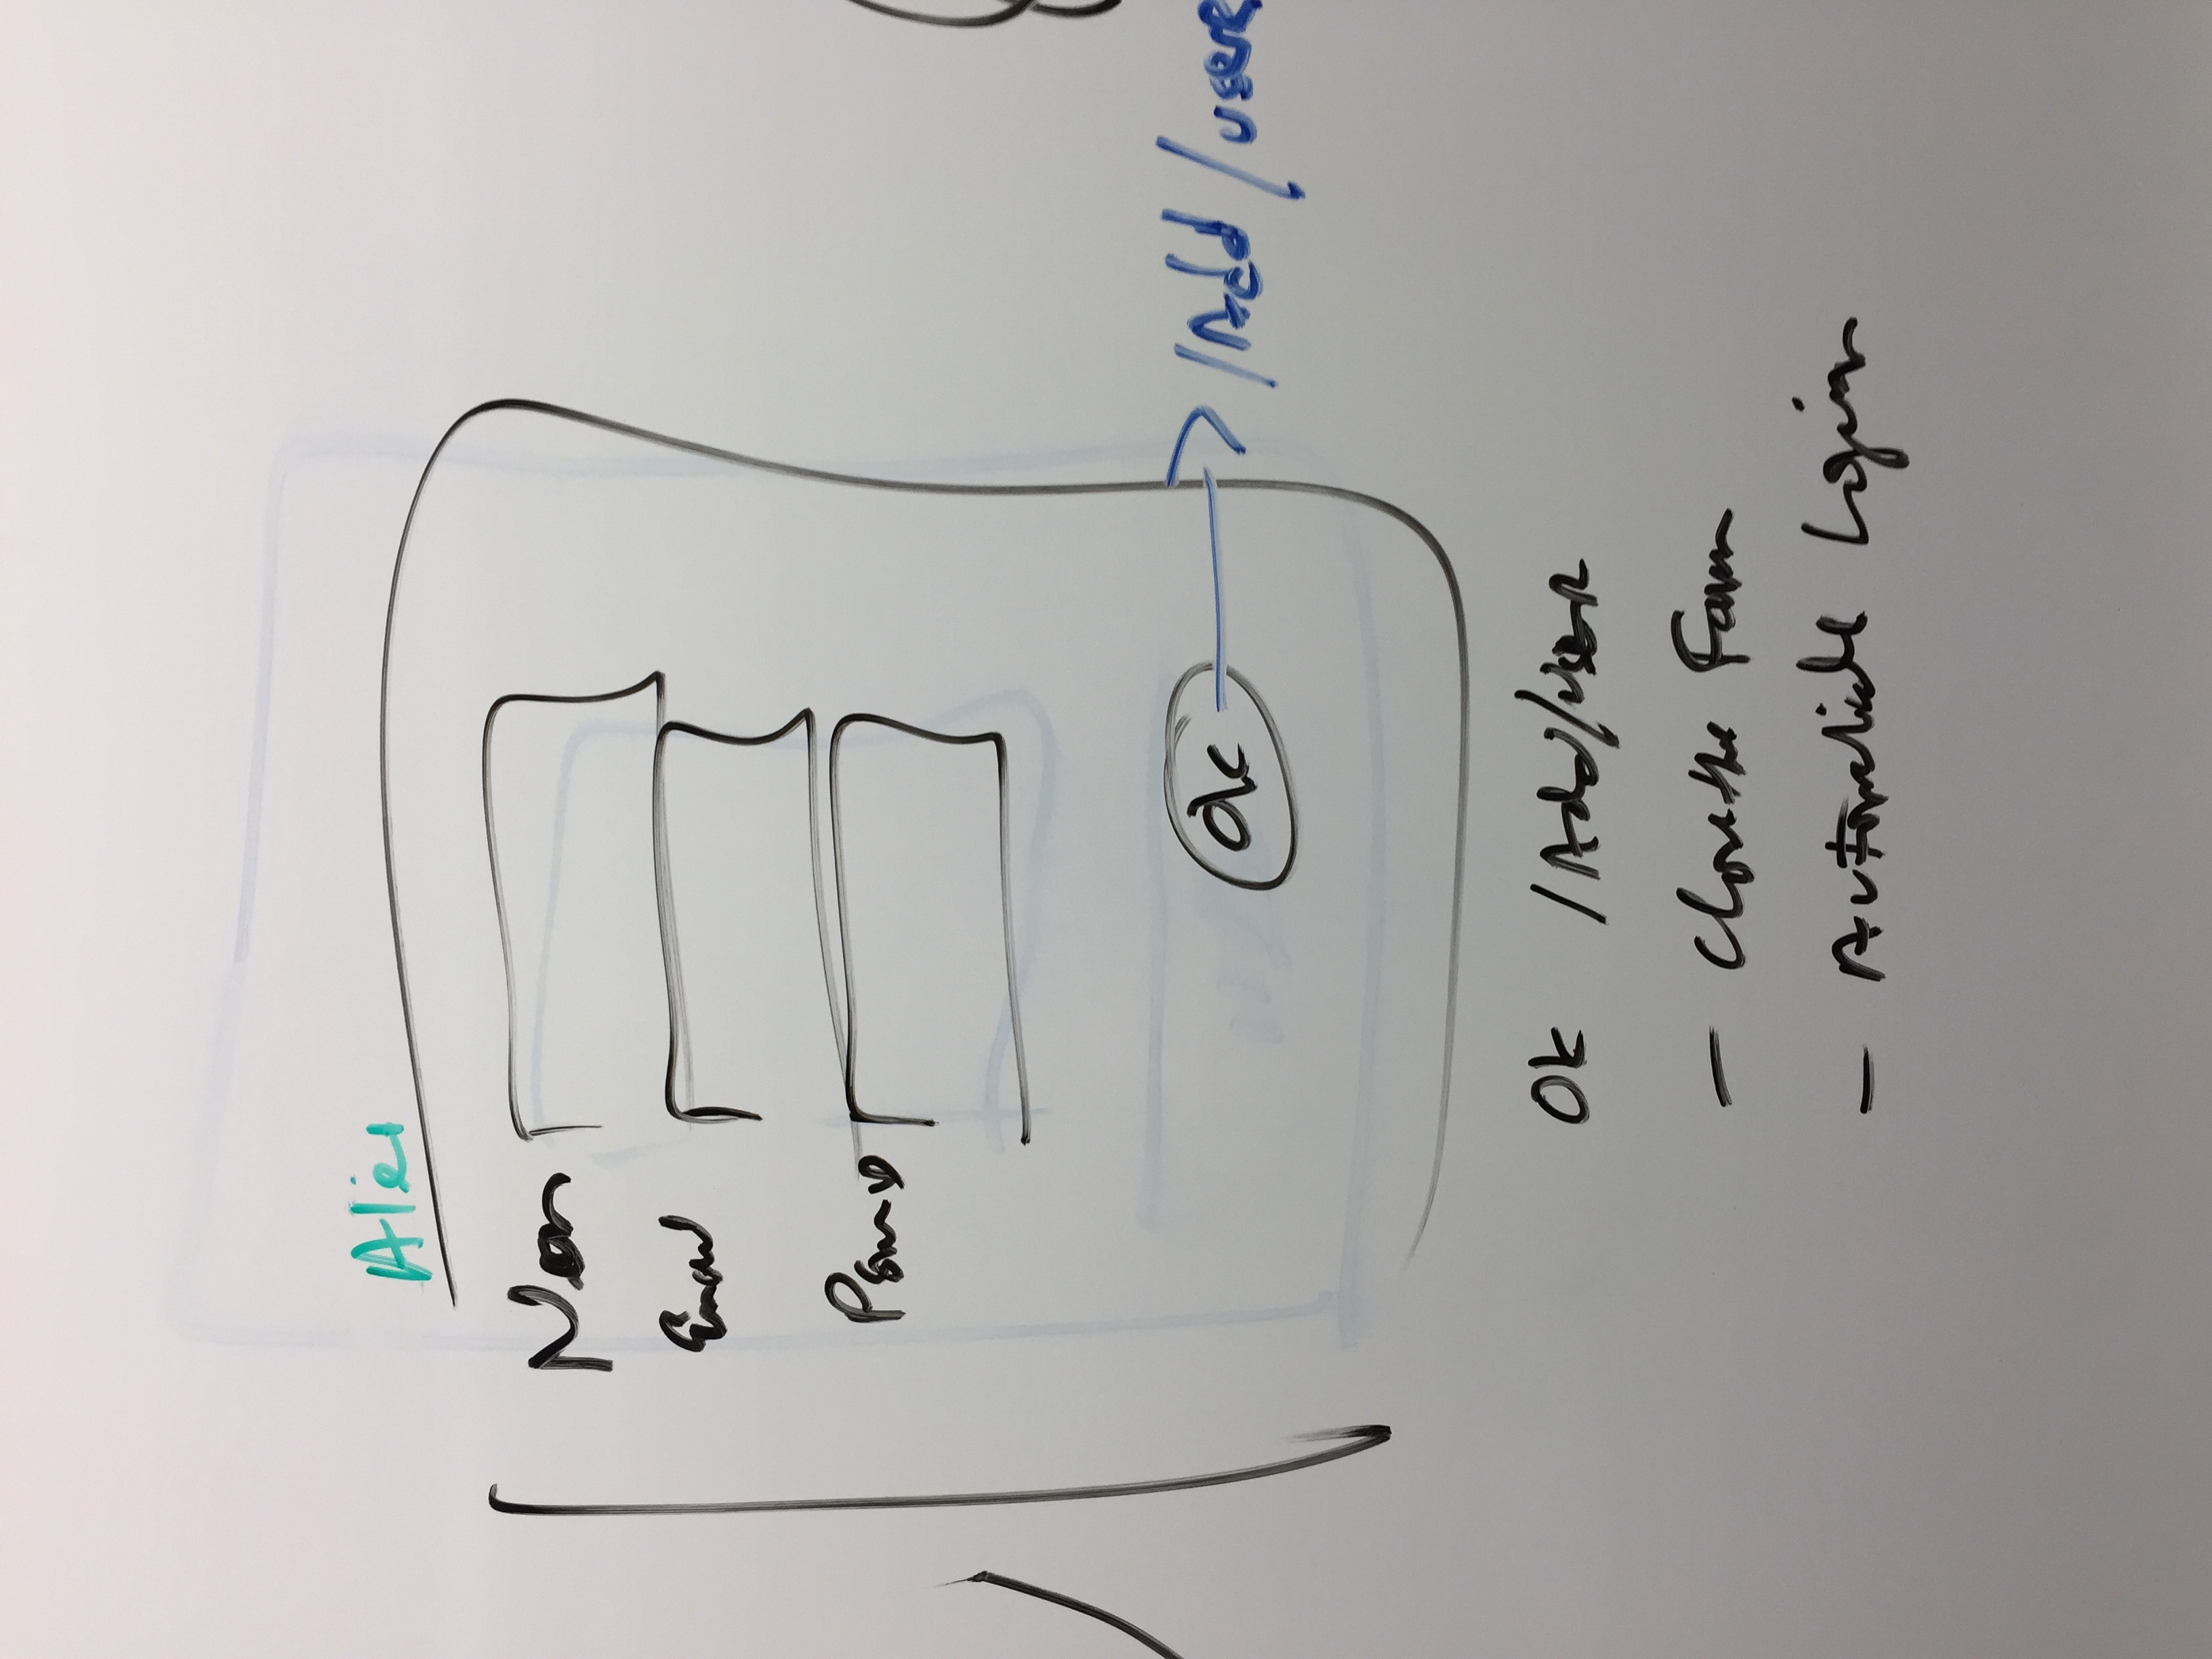 Alex
Name
Email
Ok
/Add/users
Ok /Add/user
- Close the Form
- Automatic Login